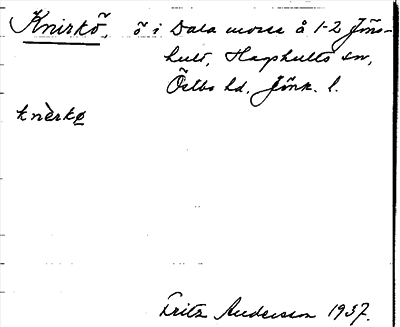 Knirkö, ö i Dala mosse å 1-2 Jöns-
hult, Hagshults sn,
Östbo hd, Jönk. l.
knèrkø
Fritz Andersson 1937.